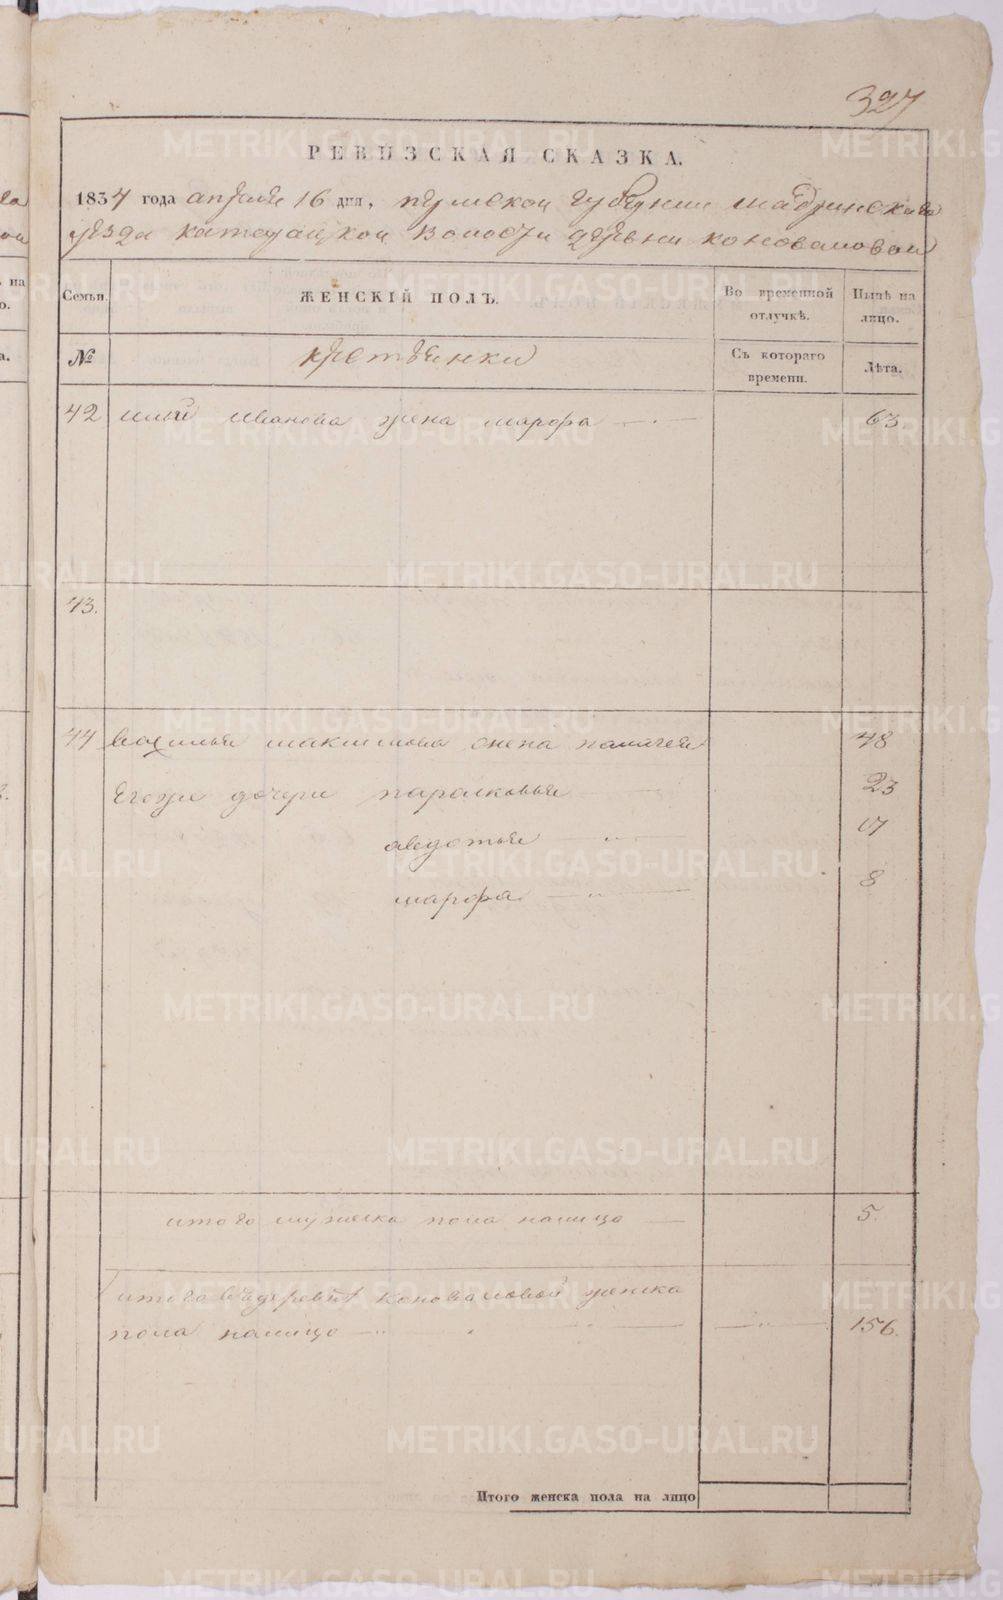 327
РЕВИЗСКАЯ СКАЗКА.
1834 года апреля 16 дня, пермской губернии шадринскаго
уезда катайской волости деревни коноваловой
Семьи. ЖЕНСКІЙ ПОЛЪ. Во временной отлучкѣ. Нынѣ на лицо.
№ крестьянки Съ котораго времени. Лѣта.
42 ивана жена марфа 63
43.
44 василья максимова жена 48
Егоже дочери парасковья 23
авдотья 17
марфа 8
итого женска пола налицо 5.
итого вдеревнѣ Коноваловой женска
пола налицо 156.
Итого женска пола на лицо
METRIKI.GASO-URAL.RU